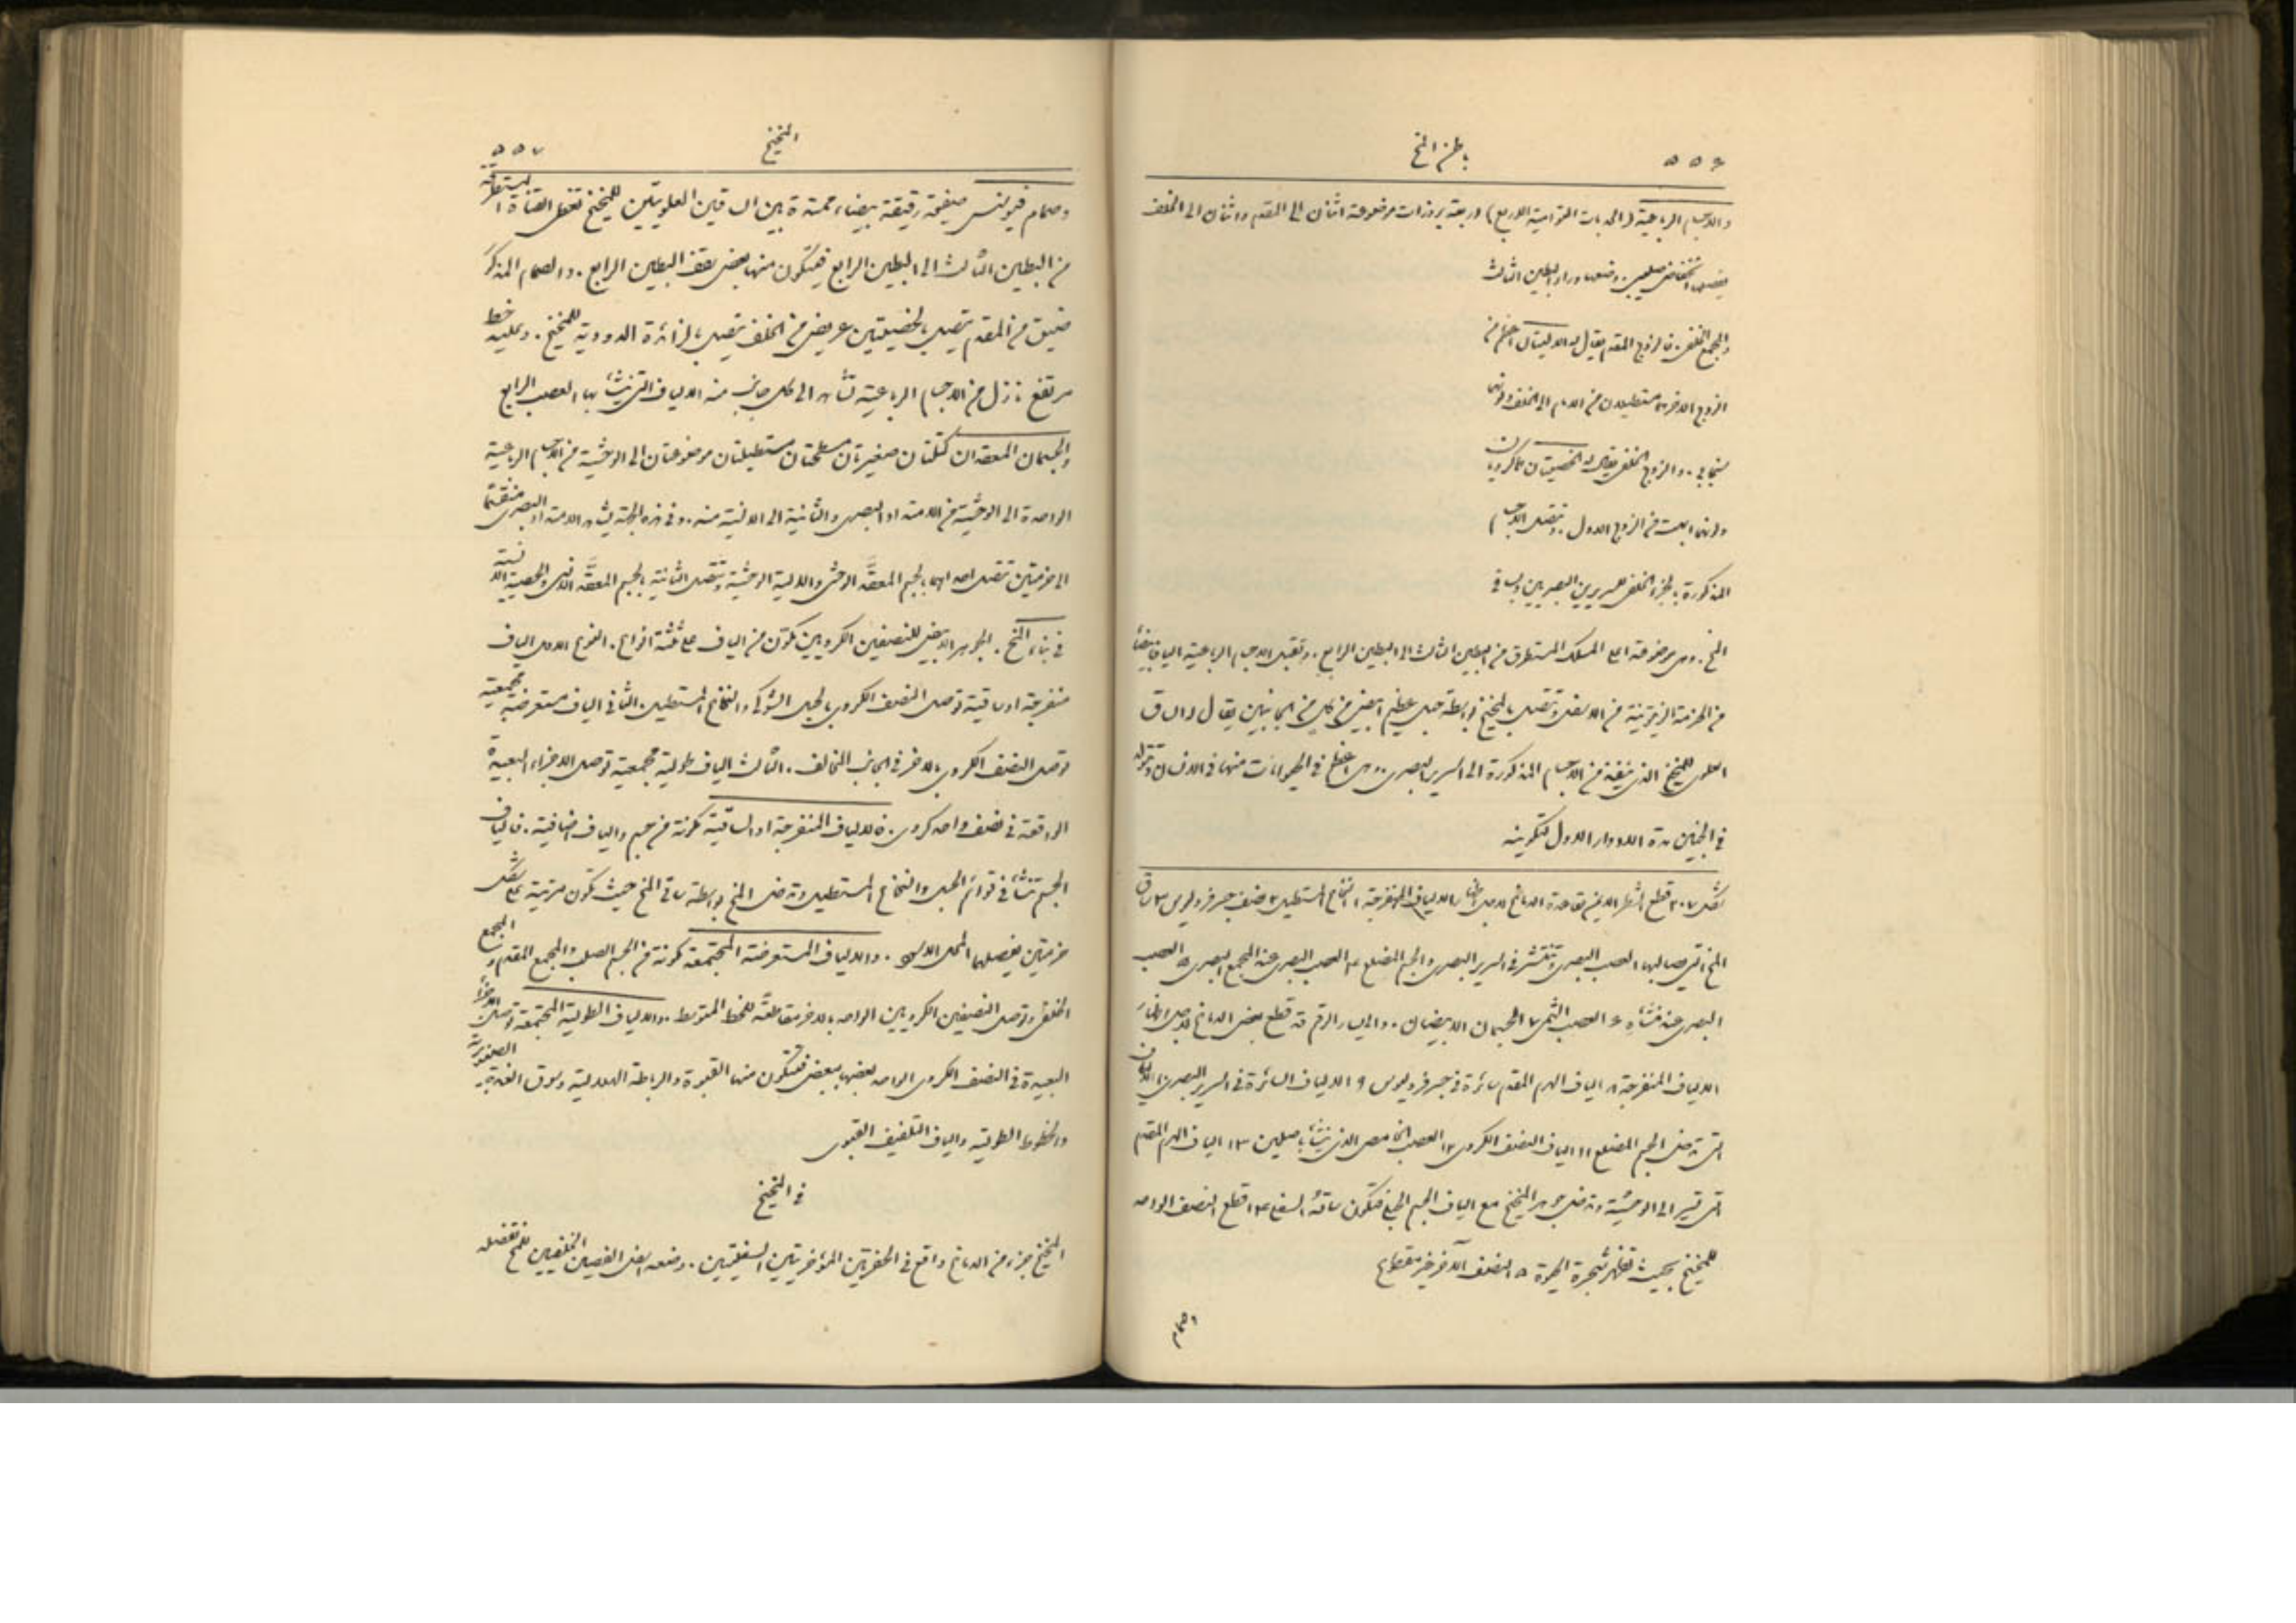 ٥٥٦ باطن المخ
والاجسام الرباعية (الحدبات التوامية الاربع) اربعة بروزات موضوعة اثنان الى المقدم واثنان الى الخلف
يفصلها انخفاض صليبي. وضعها وراء البطين الثالث
والمجمع الخلفي. فالزوج المقدم يقال له الاليتان
الزوج الاخر مستطيلان من الامام الى الخلف ولونهما
سنجابي. والزوج الخلفي يقال له الخصيتان
ولونهما ابهت من الزوج الاول. وتتصل الاجسام
المذكورة بالجزء الخلفي للسريرين البصريين وبساقي
المخ. وهي موضوعة اعلى المسلك المستطرق من البطين الثالث الى البطين الرابع. وتقبل الاجسام الرباعية اليافا بيضاء
من الحزمة الزيتونية من الاسفل وتتصل بالمخيخ بواسطة حبل عظيم ابيض من كل من الجانبين يقال له الساق
العلوي للمخيخ الذي ينفذ من الاجسام المذكورة الى السرير البصري. وهي اعظم في الحيوانات منها في الانسان
في الجنين مدة الادوار الاول لتكوينه
شكل ٢٠٧ قطع الشطر الايمن بقاعدة الدماغ لاجل اظهار الالياف المنفرجة ١ النخاع المستطيل ٢ نصف جسر فروليوس ٣ ساق
المخ التي بها العصب البصري وتنتشر في السرير البصري والجسم المضلع ٤ العصب البصري عند المجمع البصري ٥ العصب
البصري عند منشاه ٦ العصب الشمي ٧ الجسمان الابيضان. والى يسار الرقم قد قطع بعض الدماغ لاجل اظهار
الالياف المنفرجة ٨ الياف الهرم المقدم سائرة في جسر فروليوس ٩ الالياف السائرة في السرير البصري ١٠ الالياف
التي تدخل الجسم المضلع ١١ الياف النصف الكروي ١٢ العصب الخامس الذي ينشأ باصلين ١٣ الياف الهرم المقدم
التي تسير الى الوحشية وتدخل جوهر المخيخ مع الياف الجسم الحبلي فتكون ساقه السفلى ١٤ قطع النصف الواحد
للمخيخ بحيث تظهر شجرة الحيوة ١٥ النصف الآخر غير مقطوع
المخيخ ٥٥٧
وصمام فيوسنس صفيحة رقيقة بيضاء ممتدة بين الساقين العلويتين للمخيخ تغطي القناة المستطرقة
من البطين الثالث الى البطين الرابع فيتكون منها بعض سقف البطين الرابع. والصمام المذكور
ضيق من المقدم يتصل بالخصيتين عريض من الخلف يتصل بالزائدة الدودية للمخيخ. وعليه خط
مرتفع نازل من الاجسام الرباعية تشاهد الى كل جانب منه الالياف التي ينشأ بها العصب الرابع
والجسمان المعقدان كتلتان صغيرتان مسطحتان مستطيلتان موضوعتان الى الوحشية من الاجسام الرباعية
الواحدة الى الوحشية من الامتداد البصري والثانية الى الانسية منه. وفي هذه الجهة يشاهد الامتداد البصري منقسما
الى حزمتين تتصل احداهما بالجسم المعقد الوحشي والالية الوحشية وتتصل الثانية بالجسم المعقد الانسي والخصية الانسية
في بناء المخ. الجوهر الابيض للنصفين الكرويين مكون من الياف على ثلثة انواع. النوع الاول الياف
منفرجة او ساقية توصل النصف الكروي بالحبل الشوكي والنخاع المستطيل. الثاني الياف مستعرضة مجمعية
توصل النصف الكروي بالاخر في الجانب المخالف. الثالث الياف طولية مجمعية توصل الاجزاء البعيدة
الواقعة في نصف واحد كروي. فالالياف المنفرجة او الساقية مكونة من جسم والياف اضافية. فالياف
الجسم تنشأ في قوائم الحبل والنخاع المستطيل وتدخل المخ بواسطة ساقي المخ حيث تكون مرتبة على شكل
حزمتين يفصلهما المحل الاسود. والالياف المستعرضة المجتمعة مكونة من الجسم الصلب والمجمع المقدم والمجمع
الخلفي وتوصل النصفين الكرويين الواحد بالاخر مقاطعة للخط المتوسط. والالياف الطولية المجتمعة توصل الاجزاء
البعيدة في النصف الكروي الواحد بعضها ببعض فتتكون منها القبوة والرابطة الهلالية وسوق الغدة الصنوبرية
والخطوط الطولية والياف التلفيف القبوي
في المخيخ
المخيخ جزء من الدماغ واقع في الحفرتين المؤخريتين السفليتين. وضعه اسفل الفصين الخلفيين للمخ تفصله